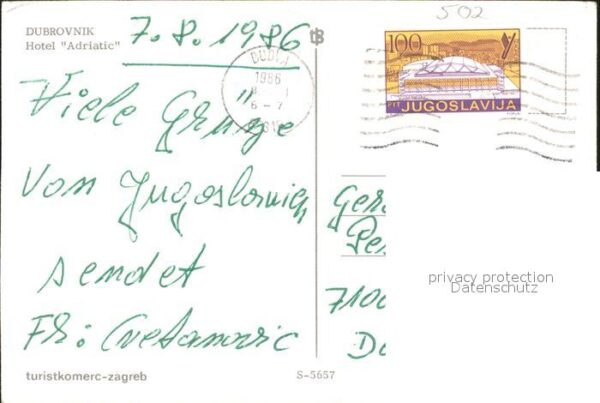 502
DUBROVNIK
Hotel "Adriatic"
7.8.1986
100
PTT JUGOSLAVIJA
1986
6-7
Viele Grüße
von Jugoslawien
sendet
Fr: Cvetanovic
Ger
Pe
7100
privacy protection
Datenschutz
turistkomerc-zagreb
S-5657